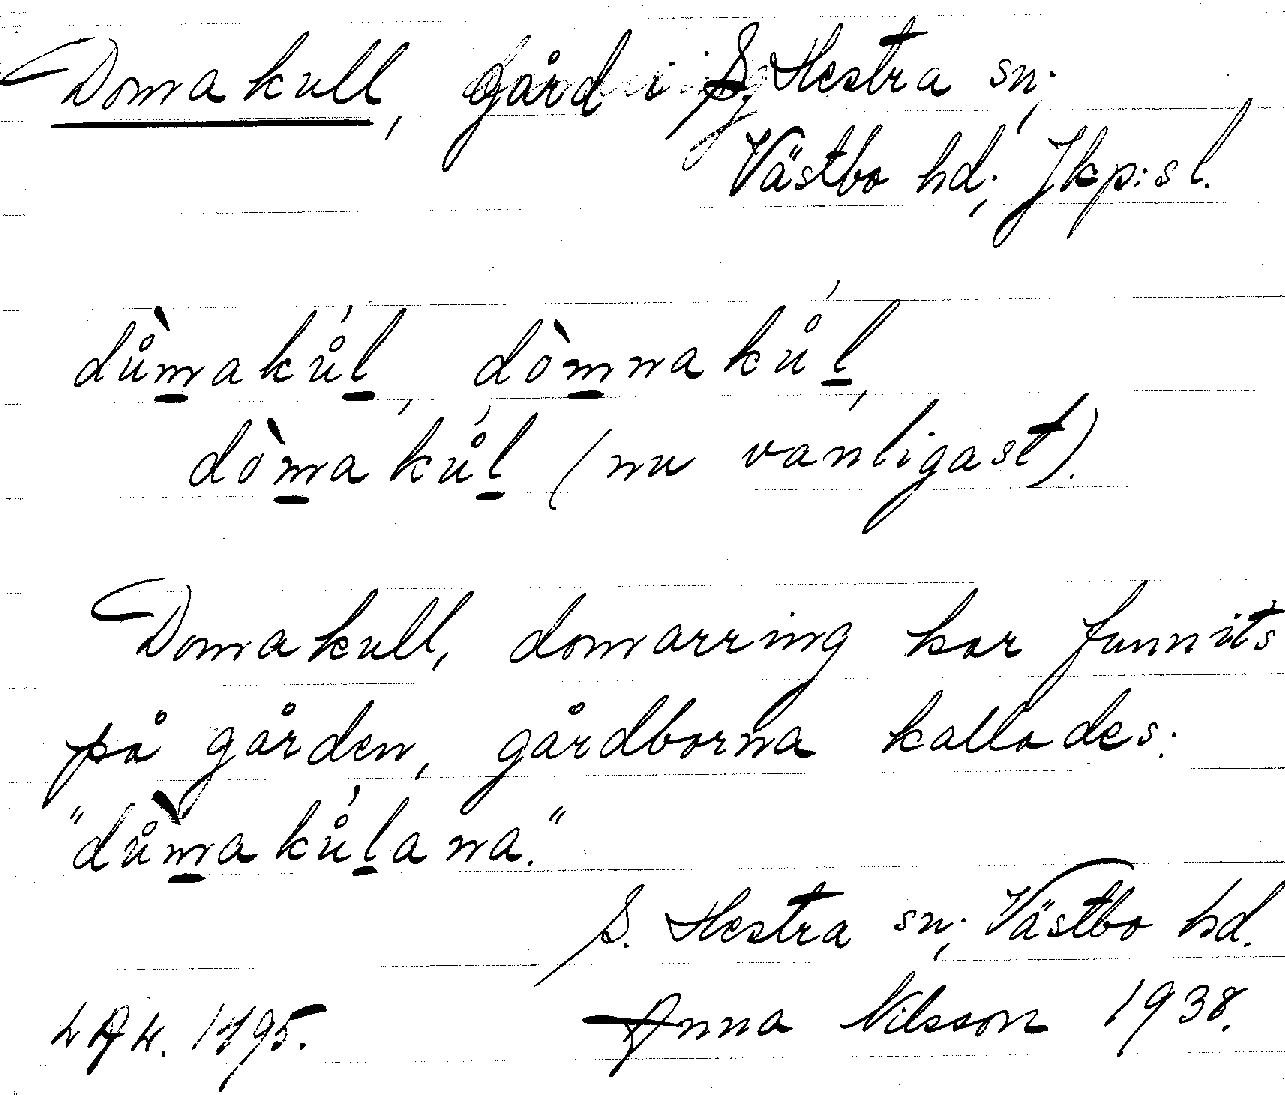 Domakull, gård i S. Hestra sn;
Västbo hd; Jkp:s l.
dů̀m̲aků́l̲, dòm̲naků́l̲,
dòm̲aků́l̲ (nu vanligast).
Domakull, domarring har funnits
på gården, gårdborna kallades:
"dů̀m̲aků́l̲ana."
S. Hestra sn; Västbo hd.
Anna Nilsson 1938.